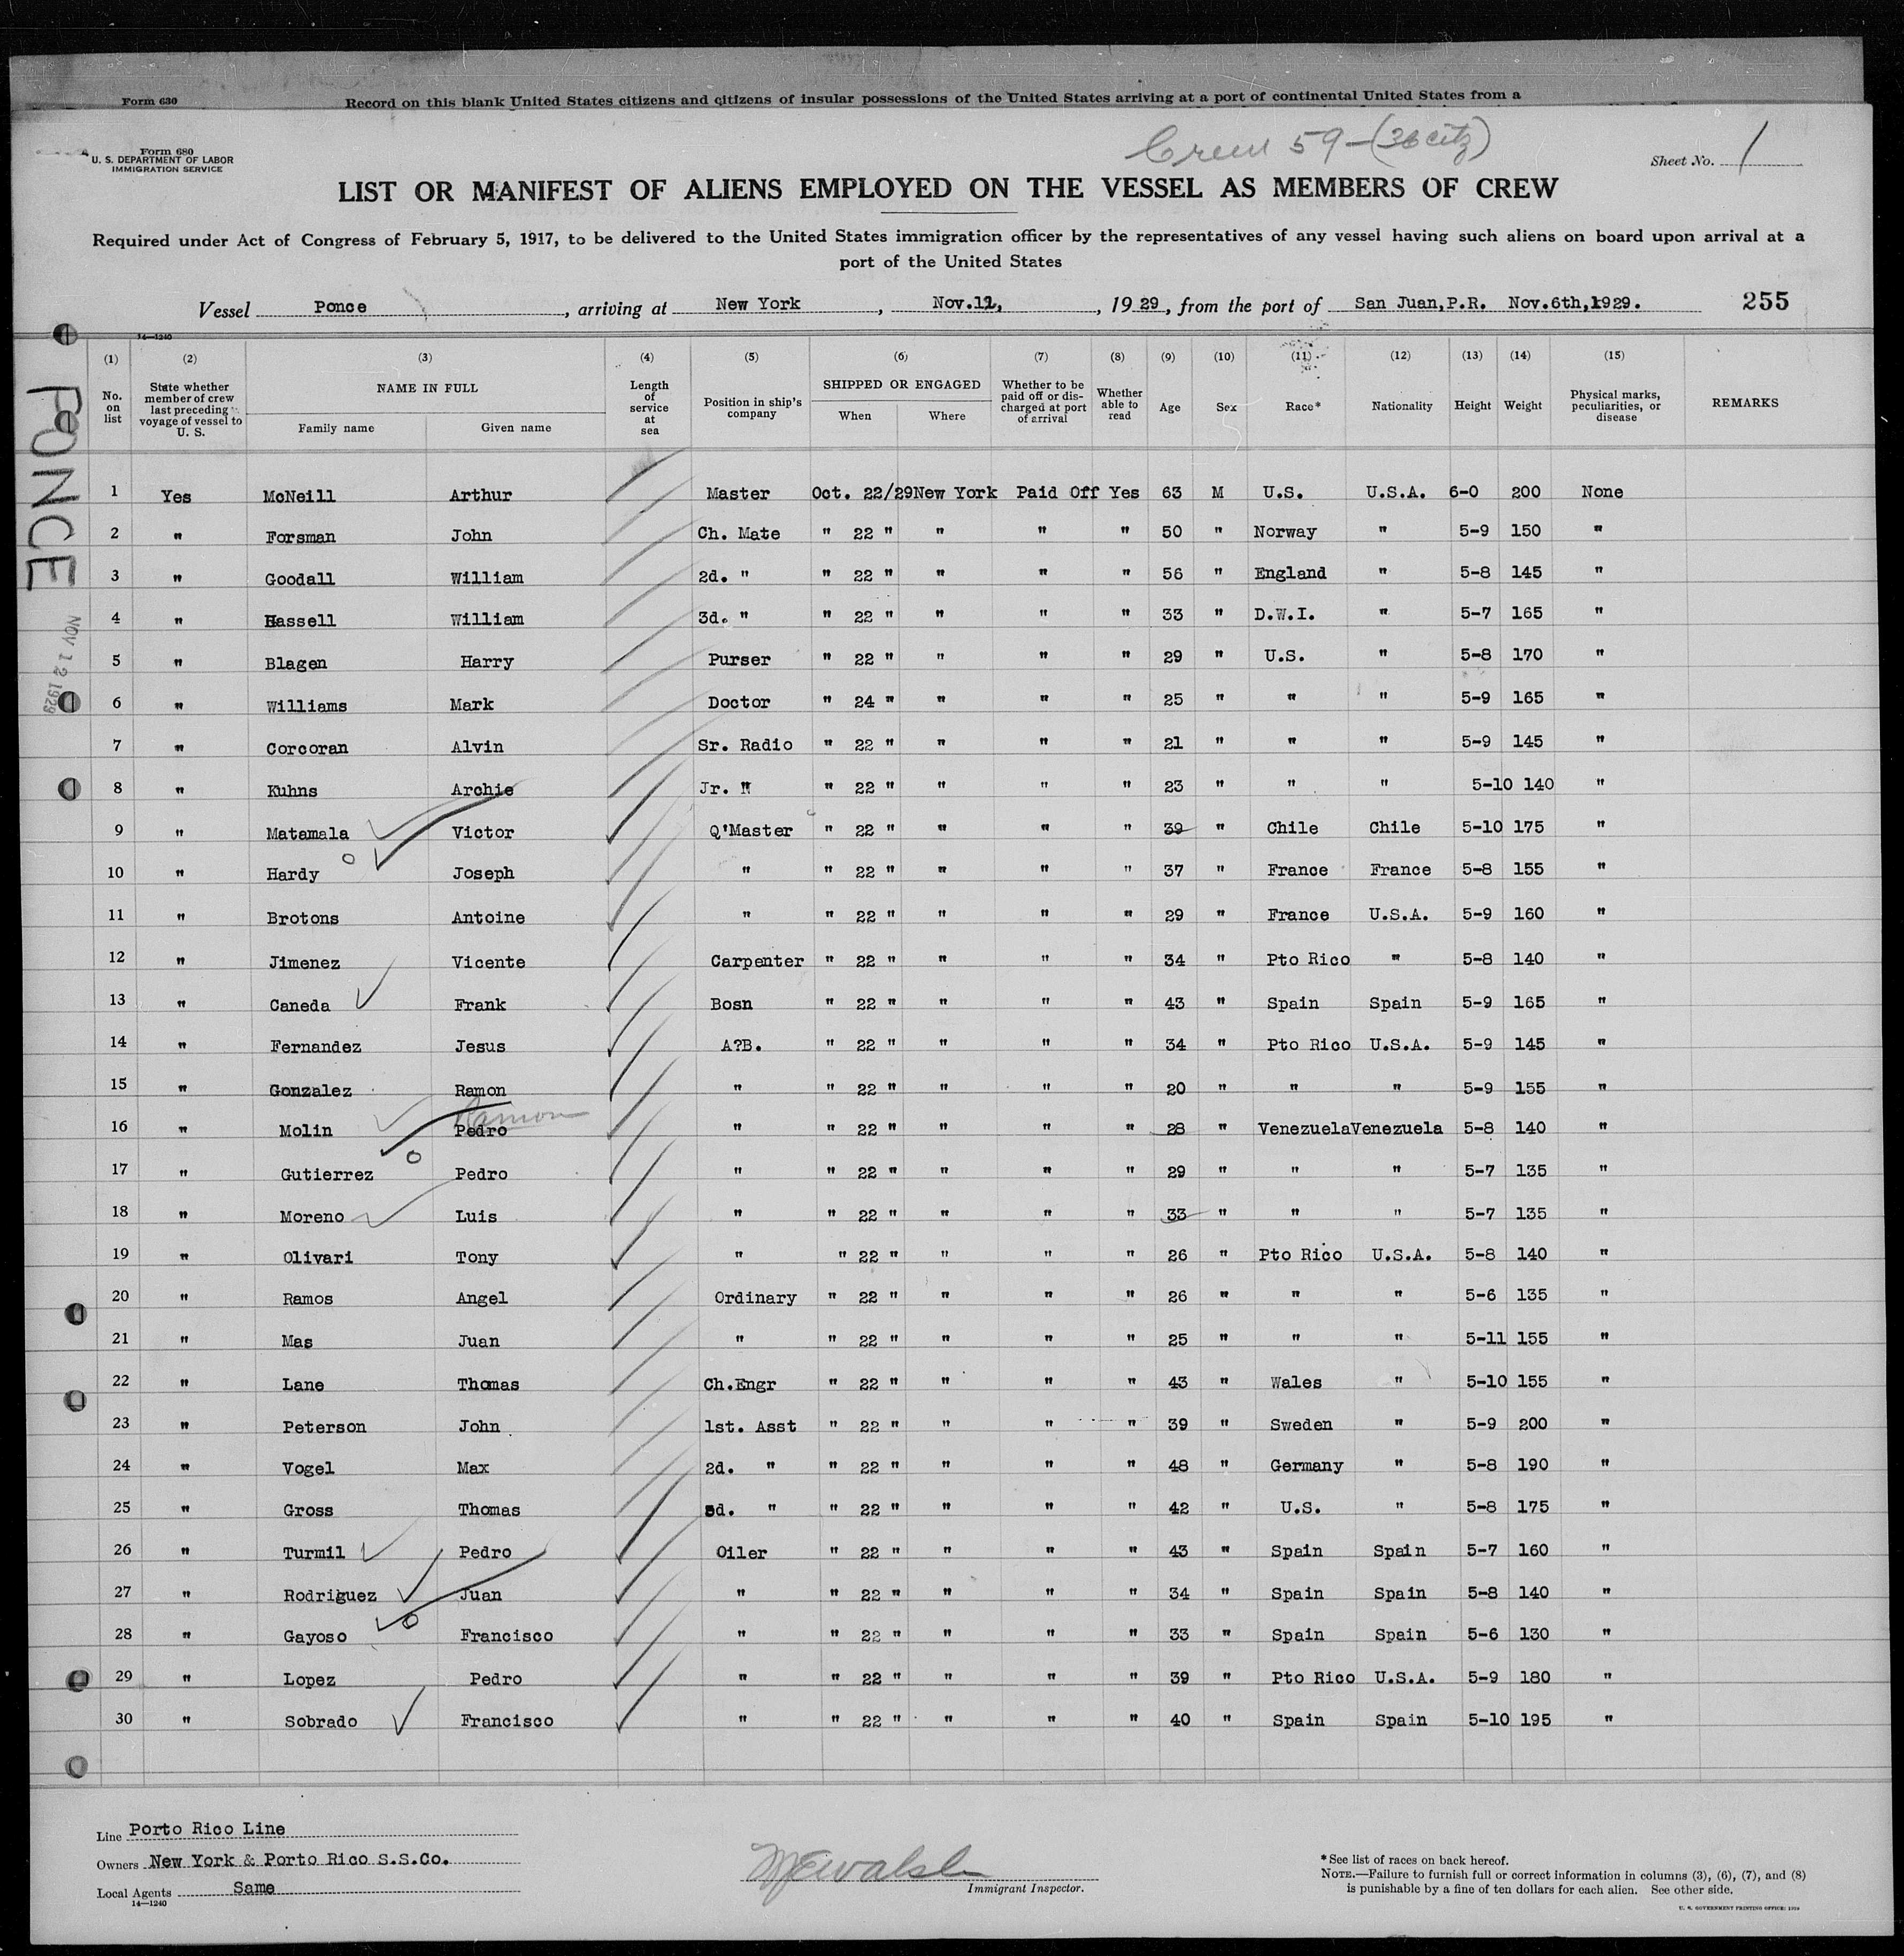 Form 630
Record on this blank United States citizens and citizens of insular possessions of the United States arriving at a port of continental United States from a
Form 680
U. S. DEPARTMENT OF LABOR
IMMIGRATION SERVICE
Crew 59-(36 citz)
Sheet No. 1
LIST OR MANIFEST OF ALIENS EMPLOYED ON THE VESSEL AS MEMBERS OF CREW
Required under Act of Congress of February 5, 1917, to be delivered to the United States immigration officer by the representatives of any vessel having such aliens on board upon arrival at a
port of the United States
Vessel Ponce, arriving at New York, Nov.12, 1929, from the port of San Juan,P.R. Nov.6th,1929. 255
14—1240
PONCE
NOV 12 1929
(1) (2) (3) (4) (5) (6) (7) (8) (9) (10) (11) (12) (13) (14) (15)
No. on list State whether member of crew last preceding voyage of vessel to U. S. NAME IN FULL Family name Given name Length of service at sea Position in ship's company SHIPPED OR ENGAGED When Where Whether to be paid off or discharged at port of arrival Whether able to read Age Sex Race* Nationality Height Weight Physical marks, peculiarities, or disease REMARKS
1 Yes McNeill Arthur Master Oct. 22/29 New York Paid Off Yes 63 M U.S. U.S.A. 6-0 200 None
2 " Forsman John Ch. Mate " 22 " " " " 50 " Norway " 5-9 150 "
3 " Goodall William 2d. " " 22 " " " " 56 " England " 5-8 145 "
4 " Hassell William 3d. " " 22 " " " " 33 " D.W.I. " 5-7 165 "
5 " Blagen Harry Purser " 22 " " " " 29 " U.S. " 5-8 170 "
6 " Williams Mark Doctor " 24 " " " " 25 " " " 5-9 165 "
7 " Corcoran Alvin Sr. Radio " 22 " " " " 21 " " " 5-9 145 "
8 " Kuhns Archie Jr. " " 22 " " " " 23 " " " 5-10 140 "
9 " Matamala Victor Q'Master " 22 " " " " 39 " Chile Chile 5-10 175 "
10 " Hardy Joseph " " 22 " " " " 37 " France France 5-8 155 "
11 " Brotons Antoine " " 22 " " " " 29 " France U.S.A. 5-9 160 "
12 " Jimenez Vicente Carpenter " 22 " " " " 34 " Pto Rico " 5-8 140 "
13 " Caneda Frank Bosn " 22 " " " " 43 " Spain Spain 5-9 165 "
14 " Fernandez Jesus A?B. " 22 " " " " 34 " Pto Rico U.S.A. 5-9 145 "
15 " Gonzalez Ramon " " 22 " " " " 20 " " " 5-9 155 "
Ramon
16 " Molin Pedro " " 22 " " " " 28 " Venezuela Venezuela 5-8 140 "
17 " Gutierrez Pedro " " 22 " " " " 29 " " " 5-7 135 "
18 " Moreno Luis " " 22 " " " " 33 " " " 5-7 135 "
19 " Olivari Tony " " 22 " " " " 26 " Pto Rico U.S.A. 5-8 140 "
20 " Ramos Angel Ordinary " 22 " " " " 26 " " " 5-6 135 "
21 " Mas Juan " " 22 " " " " 25 " " " 5-11 155 "
22 " Lane Thomas Ch.Engr " 22 " " " " 43 " Wales " 5-10 155 "
23 " Peterson John 1st. Asst " 22 " " " " 39 " Sweden " 5-9 200 "
24 " Vogel Max 2d. " " 22 " " " " 48 " Germany " 5-8 190 "
25 " Gross Thomas 3d. " " 22 " " " " 42 " U.S. " 5-8 175 "
26 " Turmil Pedro Oiler " 22 " " " " 43 " Spain Spain 5-7 160 "
27 " Rodriguez Juan " " 22 " " " " 34 " Spain Spain 5-8 140 "
28 " Gayoso Francisco " " 22 " " " " 33 " Spain Spain 5-6 130 "
29 " Lopez Pedro " " 22 " " " " 39 " Pto Rico U.S.A. 5-9 180 "
30 " Sobrado Francisco " " 22 " " " " 40 " Spain Spain 5-10 195 "
Line Porto Rico Line
Owners New York & Porto Rico S.S.Co.
Local Agents Same
14—1240
Immigrant Inspector.
*See list of races on back hereof.
NOTE.—Failure to furnish full or correct information in columns (3), (6), (7), and (8)
is punishable by a fine of ten dollars for each alien. See other side.
U. S. GOVERNMENT PRINTING OFFICE: 1929